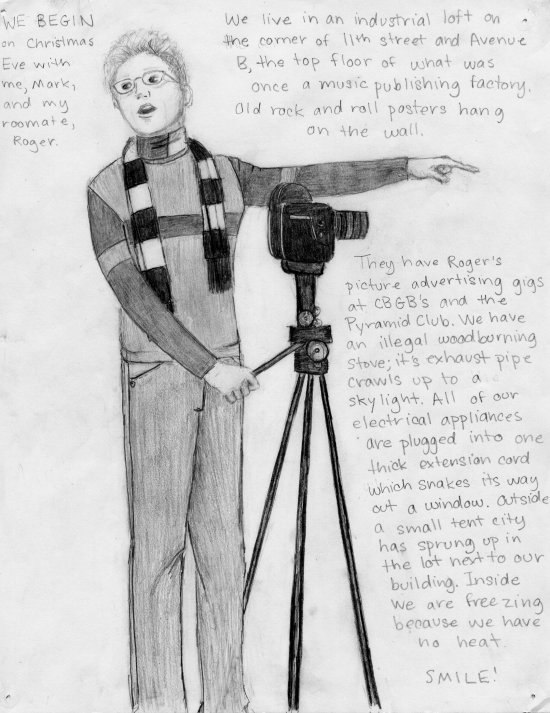 WE BEGIN
on Christmas
Eve with
me, Mark,
and my
roomate,
Roger.
We live in an industrial loft on
the corner of 11th street and Avenue
B, the top floor of what was
once a music publishing factory.
Old rock and roll posters hang
on the wall.
They have Roger's
picture advertising gigs
at CBGB's and the
Pyramid Club. We have
an illegal woodburning
stove; it's exhaust pipe
crawls up to a
skylight. All of our
electrical appliances
are plugged into one
thick extension cord
which snakes its way
out a window. Outside
a small tent city
has sprung up in
the lot next to our
building. Inside
we are freezing
because we have
no heat.
SMILE!